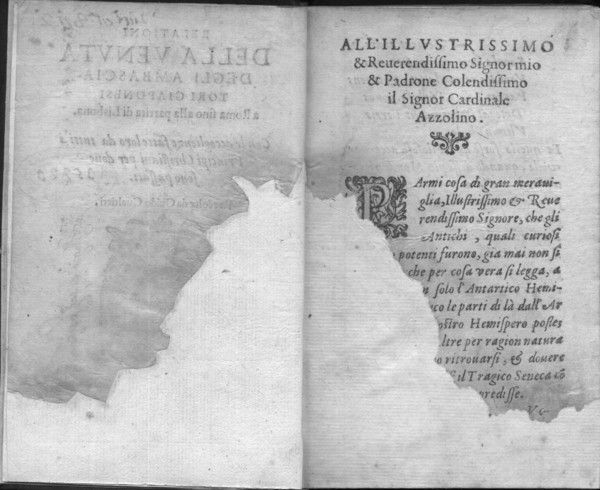 RELATIONI
DELLA VENVTA
DEGLI AMBASCIA-
TORI GIAPONESI
a Roma sino alla partita di Lisbona.
Con
fatte loro da tutti i
Principi Christiani per doue
sono passati.
Raccolte da Guido Gualtieri.
ALL'ILLVSTRISSIMO
& Reuerendissimo Signor mio
& Padrone Colendissimo
il Signor Cardinale
Azzolino.
PArmi cosa di gran meraui-
glia, Illustrissimo & Reue
rendissimo Signore, che gli
Antichi, quali curiosi
potenti furono, gia mai non si
che per cosa vera si legga, a
n solo l'Antartico Hemi-
co le parti di là dall'Ar
ostro Hemispero postes
ltre per ragion natura
o ritrouarsi, & douere
il Tragico Seneca cō
predisse.